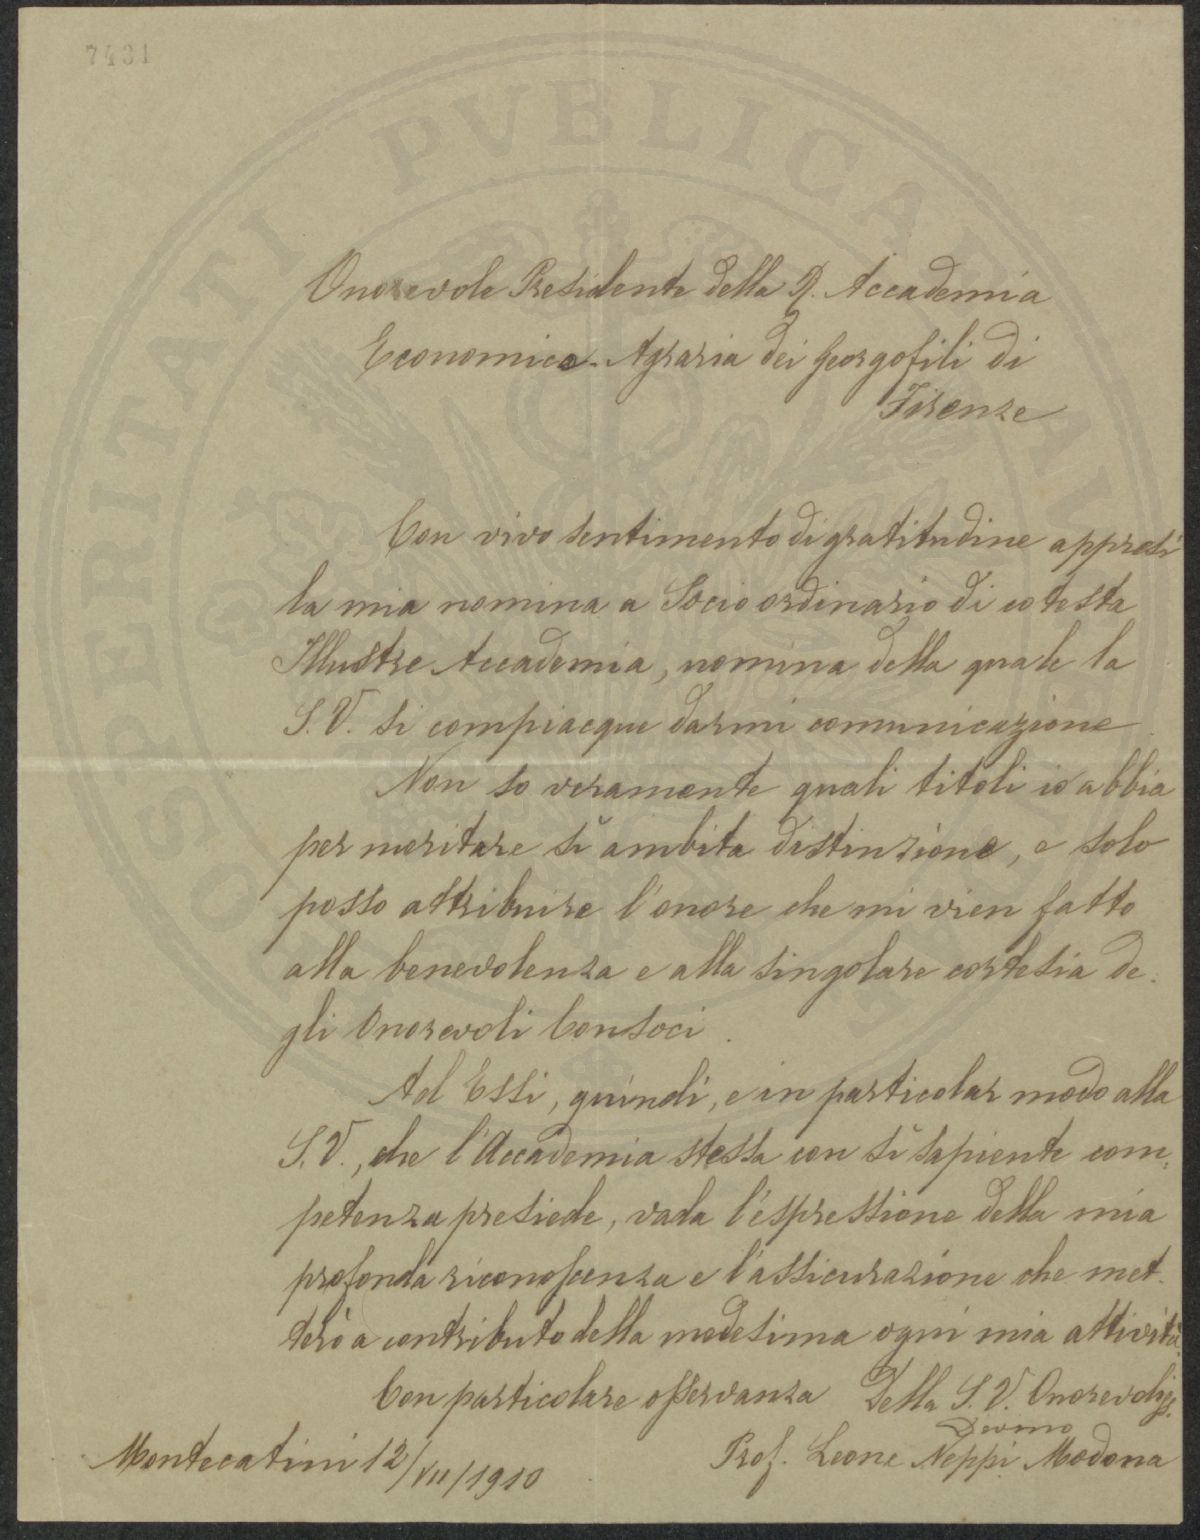 7431
PROSPERITATI PVBLICAE
Onorevole Presidente della R. Accademia
Economico-Agraria dei Georgofili di
Firenze
Con vivo sentimento di gratitudine appresi
la mia nomina a Socio ordinario di cotesta
Illustre Accademia, nomina della quale la
S. V. si compiacque darmi comunicazione
Non so veramente quali titoli io abbia
per meritare sì ambita distinzione, e solo
posso attribuire l'onore che mi vien fatto
alla benevolenza e alla singolare cortesia de-
gli Onorevoli Consoci.
Ad Essi, quindi, e in particolar modo alla
S. V., che l'Accademia stessa con sì sapiente com-
petenza presiede, vada l'espressione della mia
profonda riconoscenza e l'assicurazione che met-
terò a contributo della medesima ogni mia attività.
Con particolare osservanza Della S. V. Onorevoliss.
Devmo
Montecatini 12/VII/1910 Prof. Leone Neppi Modona